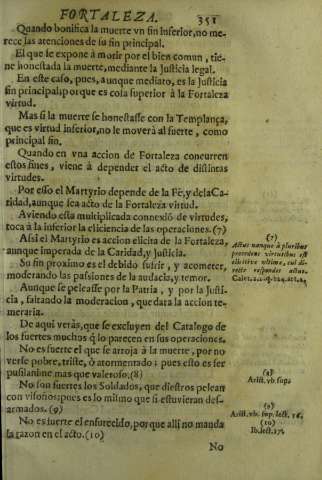 FORTALEZA. 351
Quando bonifica la muerte vn fin inferior, no me-
rece las atenciones de su fin principal.
El que se expone à morir por el bien comun, tie-
ne honestada la muerte, mediante la Iusticia legal.
En este caso, pues, aunque mediato, es la Iusticia
fin principal; porque es cosa superior à la Fortaleza
virtud.
Mas si la muerte se honestasse con la Templança,
que es virtud inferior, no le moverà al fuerte, como
principal fin.
Quando en vna accion de Fortaleza concurren
estos fines, viene à depender el acto de distintas
virtudes.
Por esso el Martyrio depende de la Fè, y de la Ca-
ridad, aunque sea acto de la Fortaleza virtud.
Aviendo esta multiplicada connexiõ de virtudes,
toca à la inferior la eliciencia de las operaciones. (7)
Assi el Martyrio es accion elicita de la Fortaleza,
aunque imperada de la Caridad, y Iusticia.
Su fin proximo es el debido sufrir, y acometer,
moderando las passiones de la audacia, y temor.
Aunque se pelease por la Patria, y por la Justi-
cia, faltando la moderacion, quedara la accion te-
meraria.
De aqui veràs, que se excluyen del Catalogo de
los fuertes muchos q̃ lo parecen en sus operaciones.
No es fuerte el que se arroja à la muerte, por no
verse pobre, triste, ò atormentado: pues esto es ser
pusilanime mas que valeroso. (8)
No son fuertes los Soldados, que diestros pelean
con visoños: pues es lo mismo que si estuvieran des-
armados. (9)
No es fuerte el enfurecido, porque alli no manda
la razon en el acto. (10)
No
(7)
Actus nanque à pluribus
procedens virtutibus est
elicitive ultimæ, cui di-
recte respondet actus.
Caiet. 2. 2.
(8)
Arist. vb. sup.
(9)
Arist. vb. sup. lect. 16.
(10)
Ib. lect. 17.